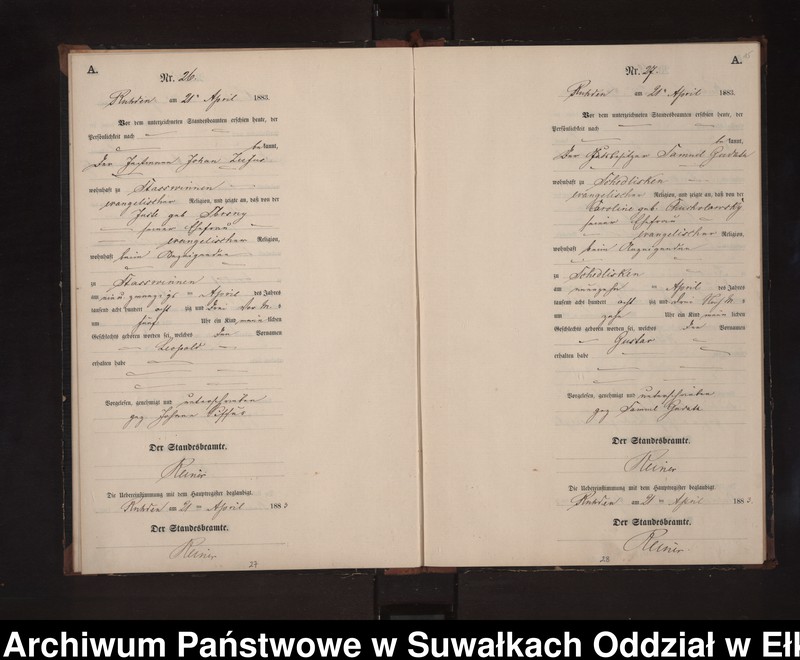 A.
Nr. 26.
am 21n April 1883.
Vor dem unterzeichneten Standesbeamten erschien heute, der
Persönlichkeit nach
bekannt,
der Johann
wohnhaft zu Stasswinnen
evangelischer Religion, und zeigte an, daß von der
geb.
seiner Ehefrau
evangelischer Religion,
wohnhaft beim Anzeigenden
zu Stasswinnen
am April des Jahres
tausend acht hundert acht zig und drei Vor M. s
um fünf Uhr ein Kind männlichen
Geschlechts geboren worden sei, welches den Vornamen
Leopold
erhalten habe
Vorgelesen, genehmigt und unterschrieben
gez Johann
Der Standesbeamte.
Reiner
Die Uebereinstimmung mit dem Hauptregister beglaubigt.
am 21 ten April 1883
Der Standesbeamte.
Reiner
27
A.
Nr. 27.
am 21n April 1883.
Vor dem unterzeichneten Standesbeamten erschien heute, der
Persönlichkeit nach
bekannt,
Der Samuel
wohnhaft zu Schedlisken
evangelischer Religion, und zeigte an, daß von der
Caroline geb.
seiner Ehefrau
evangelischer Religion,
wohnhaft beim Anzeigenden
zu Schedlisken
am neunzehn ten April des Jahres
tausend acht hundert acht zig und drei M. s
um zehn Uhr ein Kind männlichen
Geschlechts geboren worden sei, welches den Vornamen
Gustav
erhalten habe
Vorgelesen, genehmigt und unterschrieben
gez Samuel
Der Standesbeamte.
Reiner
Die Uebereinstimmung mit dem Hauptregister beglaubigt.
am 21 ten April 1883.
Der Standesbeamte.
Reiner
28
Archiwum Państwowe w Suwałkach Oddział w Ełk